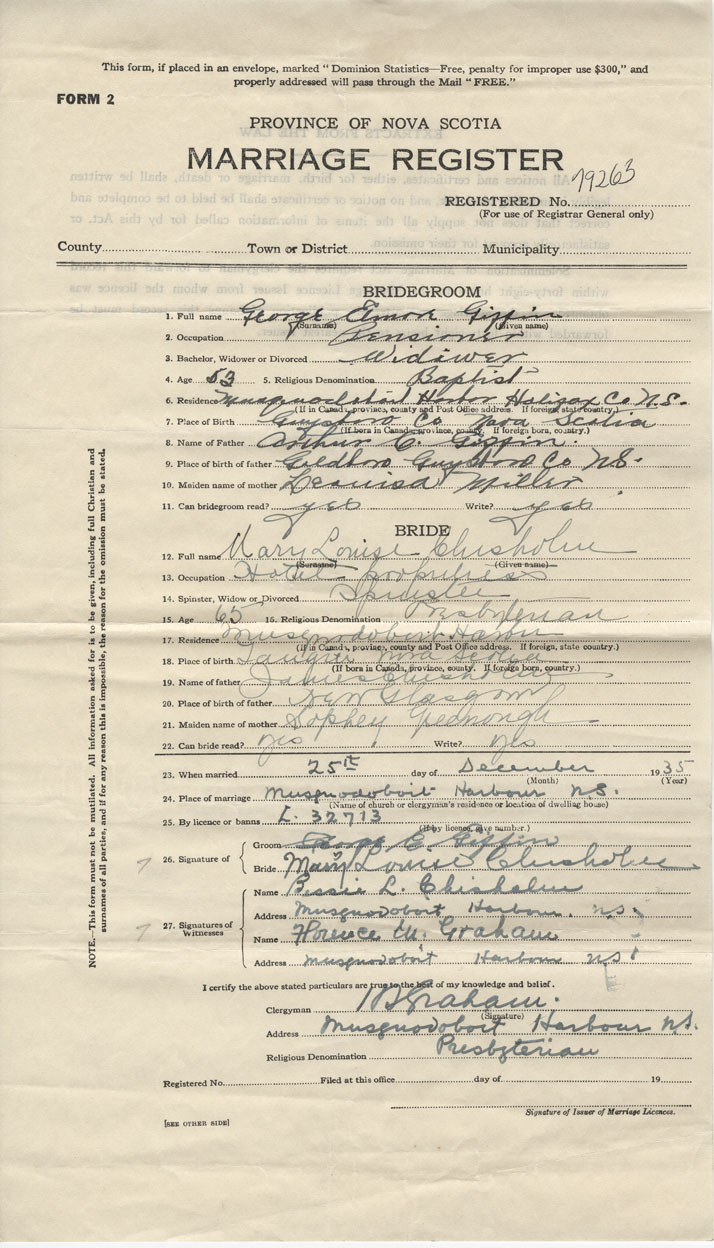 This form, if placed in an envelope, marked “ Dominion Statistics—Free, penalty for improper use $300,” and
properly addressed will pass through the Mail “ FREE.”
FORM 2
PROVINCE OF NOVA SCOTIA
MARRIAGE REGISTER
REGISTERED No. 79263
(For use of Registrar General only)
County Town or District Municipality
BRIDEGROOM
1. Full name George Elmore Giffin
(Surname) (Given name)
2. Occupation Pensioner
3. Bachelor, Widower or Divorced Widiwer
4. Age 53 5. Religious Denomination Baptist
6. Residence Musquodoboit Harbor Halifax Co N.S.
(If in Canada, province, county and Post Office address. If foreign, state country.)
7. Place of Birth Guysboro Co Nova Scotia
(If born in Canada, province, county. If foreign born, country.)
8. Name of Father Arthur C. Giffin
9. Place of birth of father Goldboro Guysboro Co NS.
10. Maiden name of mother Miller
11. Can bridegroom read? yes Write? yes
BRIDE
12. Full name Mary Louise Chisholm
(Surname) (Given name)
13. Occupation Hotel
14. Spinster, Widow or Divorced Spinster
15. Age 65 16. Religious Denomination Presbyterian
17. Residence Musquodoboit Harbor
(If in Canada, province, county and Post Office address. If foreign, state country.)
18. Place of birth Nova Scotia
(If born in Canada, province, county. If foreign born, country.)
19. Name of father James Chisholm
20. Place of birth of father New Glasgow
21. Maiden name of mother Sophey
22. Can bride read? yes Write? yes
23. When married 25th day of December 1935
(Month) (Year)
24. Place of marriage Musquodoboit Harbour N.S.
(Name of church or clergyman's residence or location of dwelling house)
25. By licence or banns L. 32713
(If by license, give number.)
26. Signature of Groom George E. Giffin
Bride Mary Louise Chisholm
27. Signatures of Witnesses
Name Bessie L. Chisholm
Address Musquodoboit Harbour, N.S.
Name Florence M. Graham
Address Musquodoboit Harbour N.S.
I certify the above stated particulars are true to the best of my knowledge and belief.
Clergyman Graham.
(Signature)
Address Musquodoboit Harbour N.S.
Religious Denomination Presbyterian
Registered No. Filed at this office day of 19
Signature of Issuer of Marriage Licences.
[SEE OTHER SIDE]
NOTE.—This form must not be mutilated. All information asked for is to be given, including full Christian and
surnames of all parties, and if for any reason this is impossible, the reason for the omission must be stated.